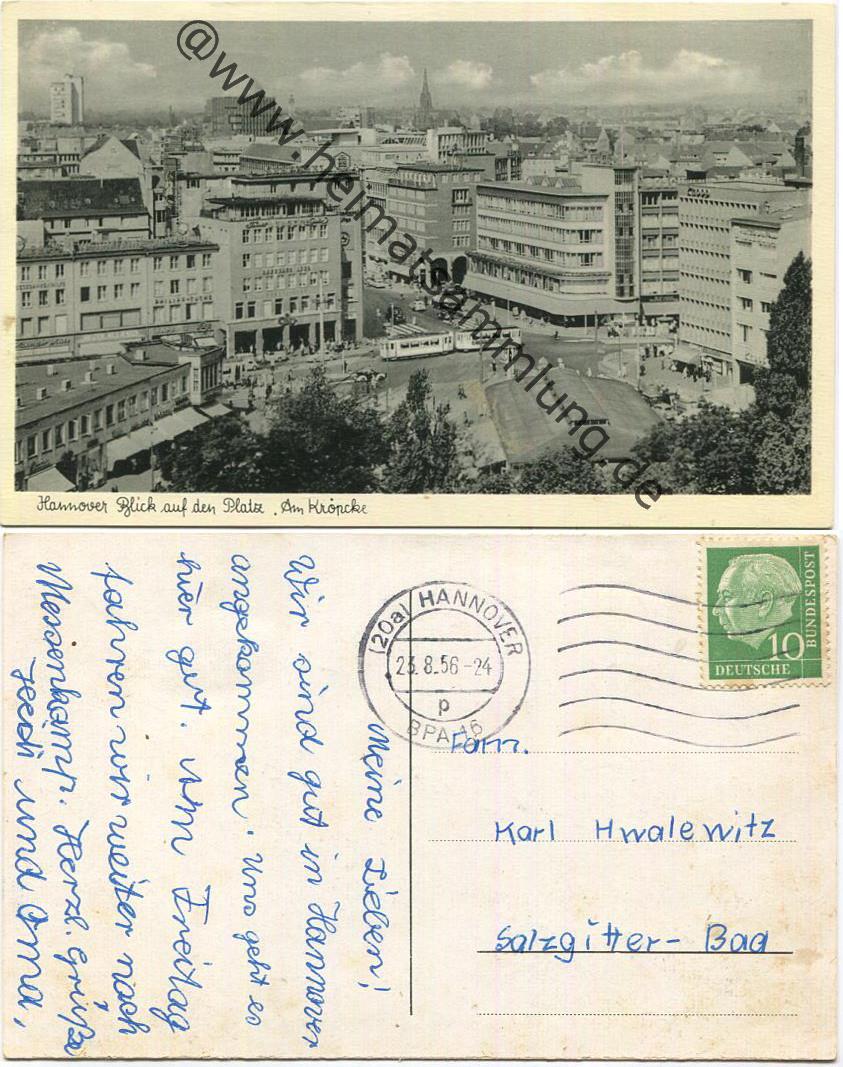 @www.heimatsammlung.de
Hannover Blick auf den Platz „Am Kröpcke
Meine Lieben!
Wir sind gut in Hannover
angekommen. Uns geht es
hier gut. Am Freitag
fahren wir weiter nach
Messenkamp. Herzl. Grüße
und Oma,
(20a) HANNOVER
23.8.56-24
p
BPA 16
10
DEUTSCHE
BUNDESPOST
Fam.
Karl Hwalewitz
Salzgitter-Bad